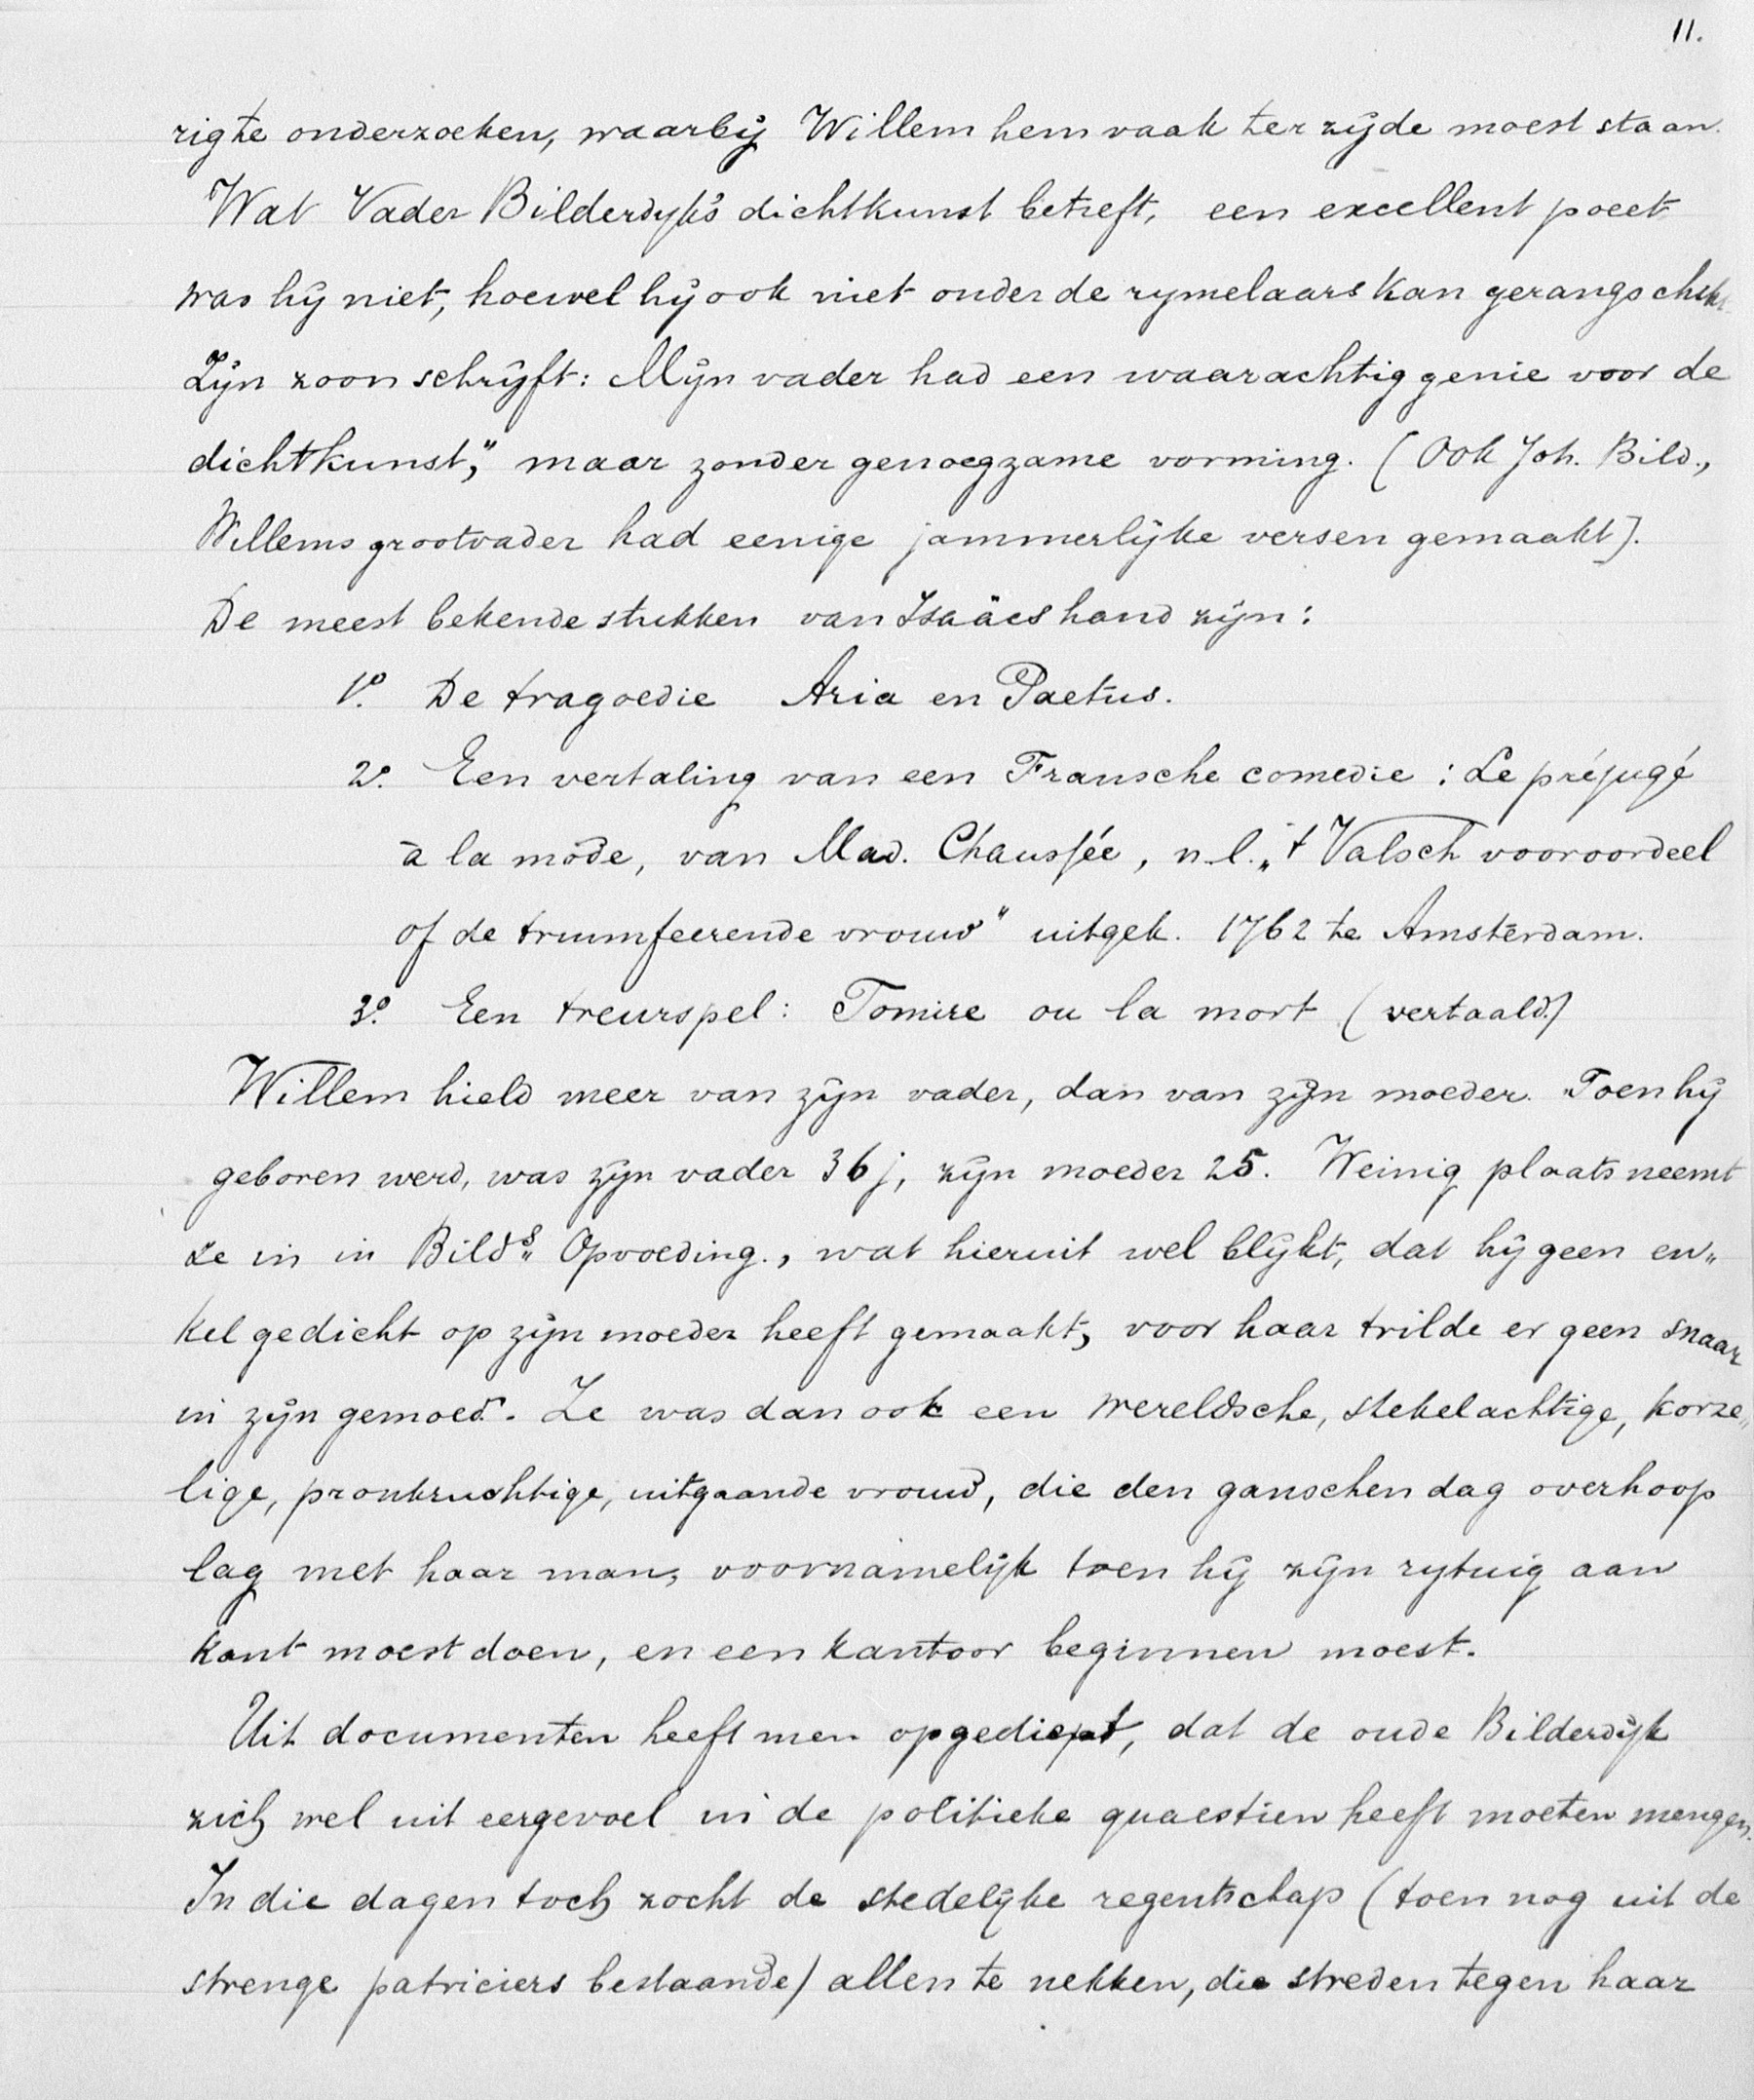 11.
rigte onderzoeken, waarbij Willem hem vaak ter zijde moest staan.
Wat Vader Bilderdyk's dichtkunst betreft, een excellent poeet
was hij niet, hoewel hij ook niet onder de rymelaars kan gerangschikt
Zijn zoon schrijft: Mijn vader had een waarachtig genie voor de
dichtkunst," maar zonder genoegzame vorming. (Ook Joh. Bild.,
Willems grootvader had eenige jammerlijke versen gemaakt).
De meest bekende stukken van Isaäcs hand zijn:
1º. De tragoedie Aria en Paetus.
2º. Een vertaling van een Fransche comedie: Le préjugé
à la mode, van Mad. Chaussée, n.l. „'t Valsch vooroordeel
of de triumfeerende vrouw" uitgek. 1762 te Amsterdam.
3º. Een treurspel: Tomire ou la mort (vertaald.)
Willem hield meer van zijn vader, dan van zijn moeder. Toen hij
geboren werd, was zijn vader 36 j, zijn moeder 25. Weinig plaats neemt
ze in in Bild's Opvoeding., wat hieruit wel blijkt, dat hij geen en„
kel gedicht op zijn moeder heeft gemaakt, voor haar trilde er geen snaar
in zijn gemoed. Ze was dan ook een wereldsche, stekelachtige, korze„
lige, pronkzuchtige, uitgaande vrouw, die den ganschen dag overhoop
lag met haar man, voornamelijk toen hij zijn rytuig aan
kant moest doen, en een kantoor beginnen moest.
Uit documenten heeft men opgediept, dat de oude Bilderdijk
zich wel uit eergevoel in de politieke quaestien heeft moeten mengen.
In die dagen toch zocht de stedelijke regentschap (toen nog uit de
strenge patriciers bestaande) allen te nekken, die streden tegen haar